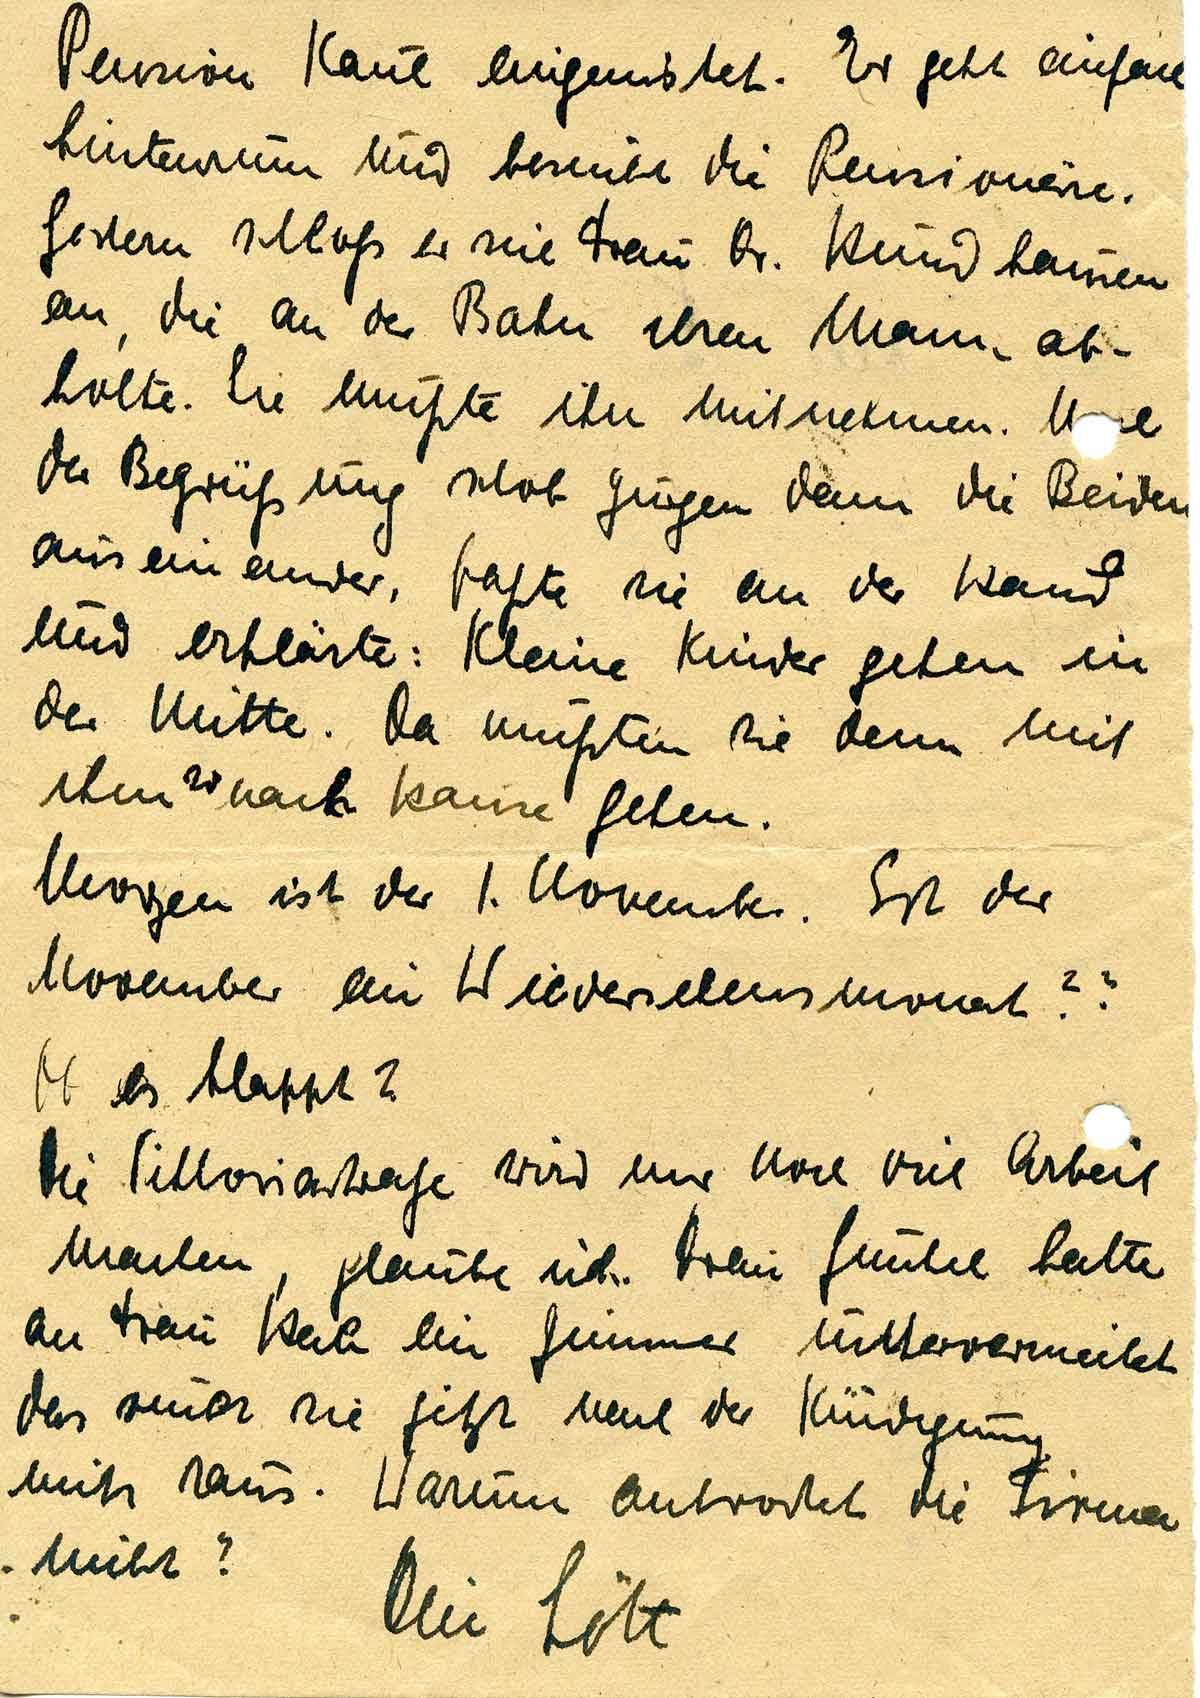 Pension Kaul eingenistet. Er geht einfach
hintenrum und besucht die Pensionäre.
Gestern schloß er sich Frau Dr. Hundhausen
an, die an der Bahn ihren Mann ab-
holte. Sie mußte ihn mitnehmen. Nach
der Begrüßung schob Jürgen dann die Beiden
auseinander, faßte sie an der Hand
und erklärte: Kleine Kinder gehen in
der Mitte. Da mußten sie denn mit
ihm so nach Hause gehen.
Morgen ist der 1. November. Ist der
November ein Wiedersehensmonat??
Ob es klappt?
Die Viktoriastraße wird mir noch viel Arbeit
machen, glaube ich. Frau hatte
an Frau ein Zimmer untervermietet
das muß sie jetzt nach der Kündigung
nicht raus. Warum antwortet die Firma
nicht?
Dein Lött